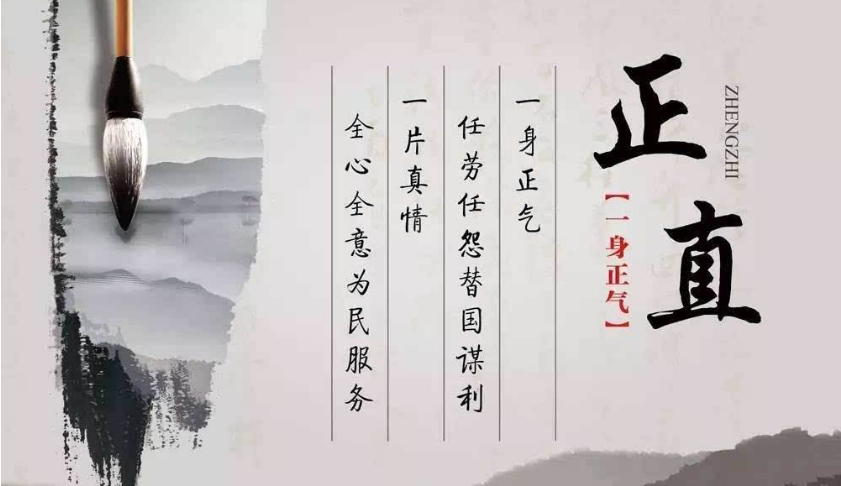 正直
ZHENGZHI
【一身正气】
一身正气
任劳任怨替国谋利
一片真情
全心全意为民服务